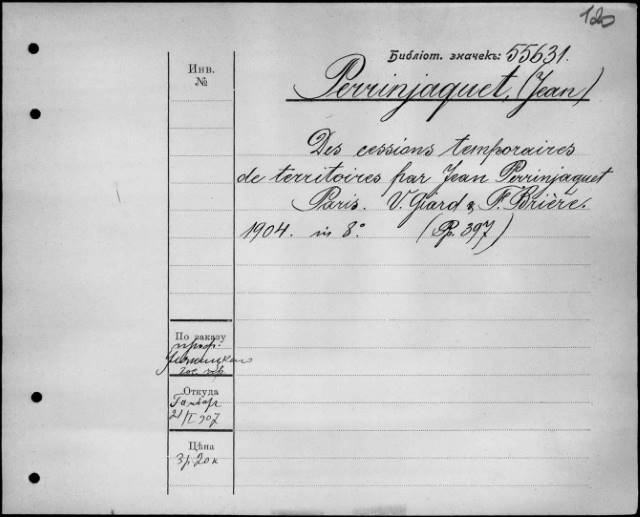 120
Библіот. значекъ: 55631.
Инв.
№
Perrinjaquet, (Jean)
Des cessions temporaires
de territoires par Jean Perrinjaquet
Paris. V. Giard & F. Brière.
1904. in 8° (Pp. 397)
По заказу
проф.
Откуда
21/I 907
Цѣна
3 р. 20 к